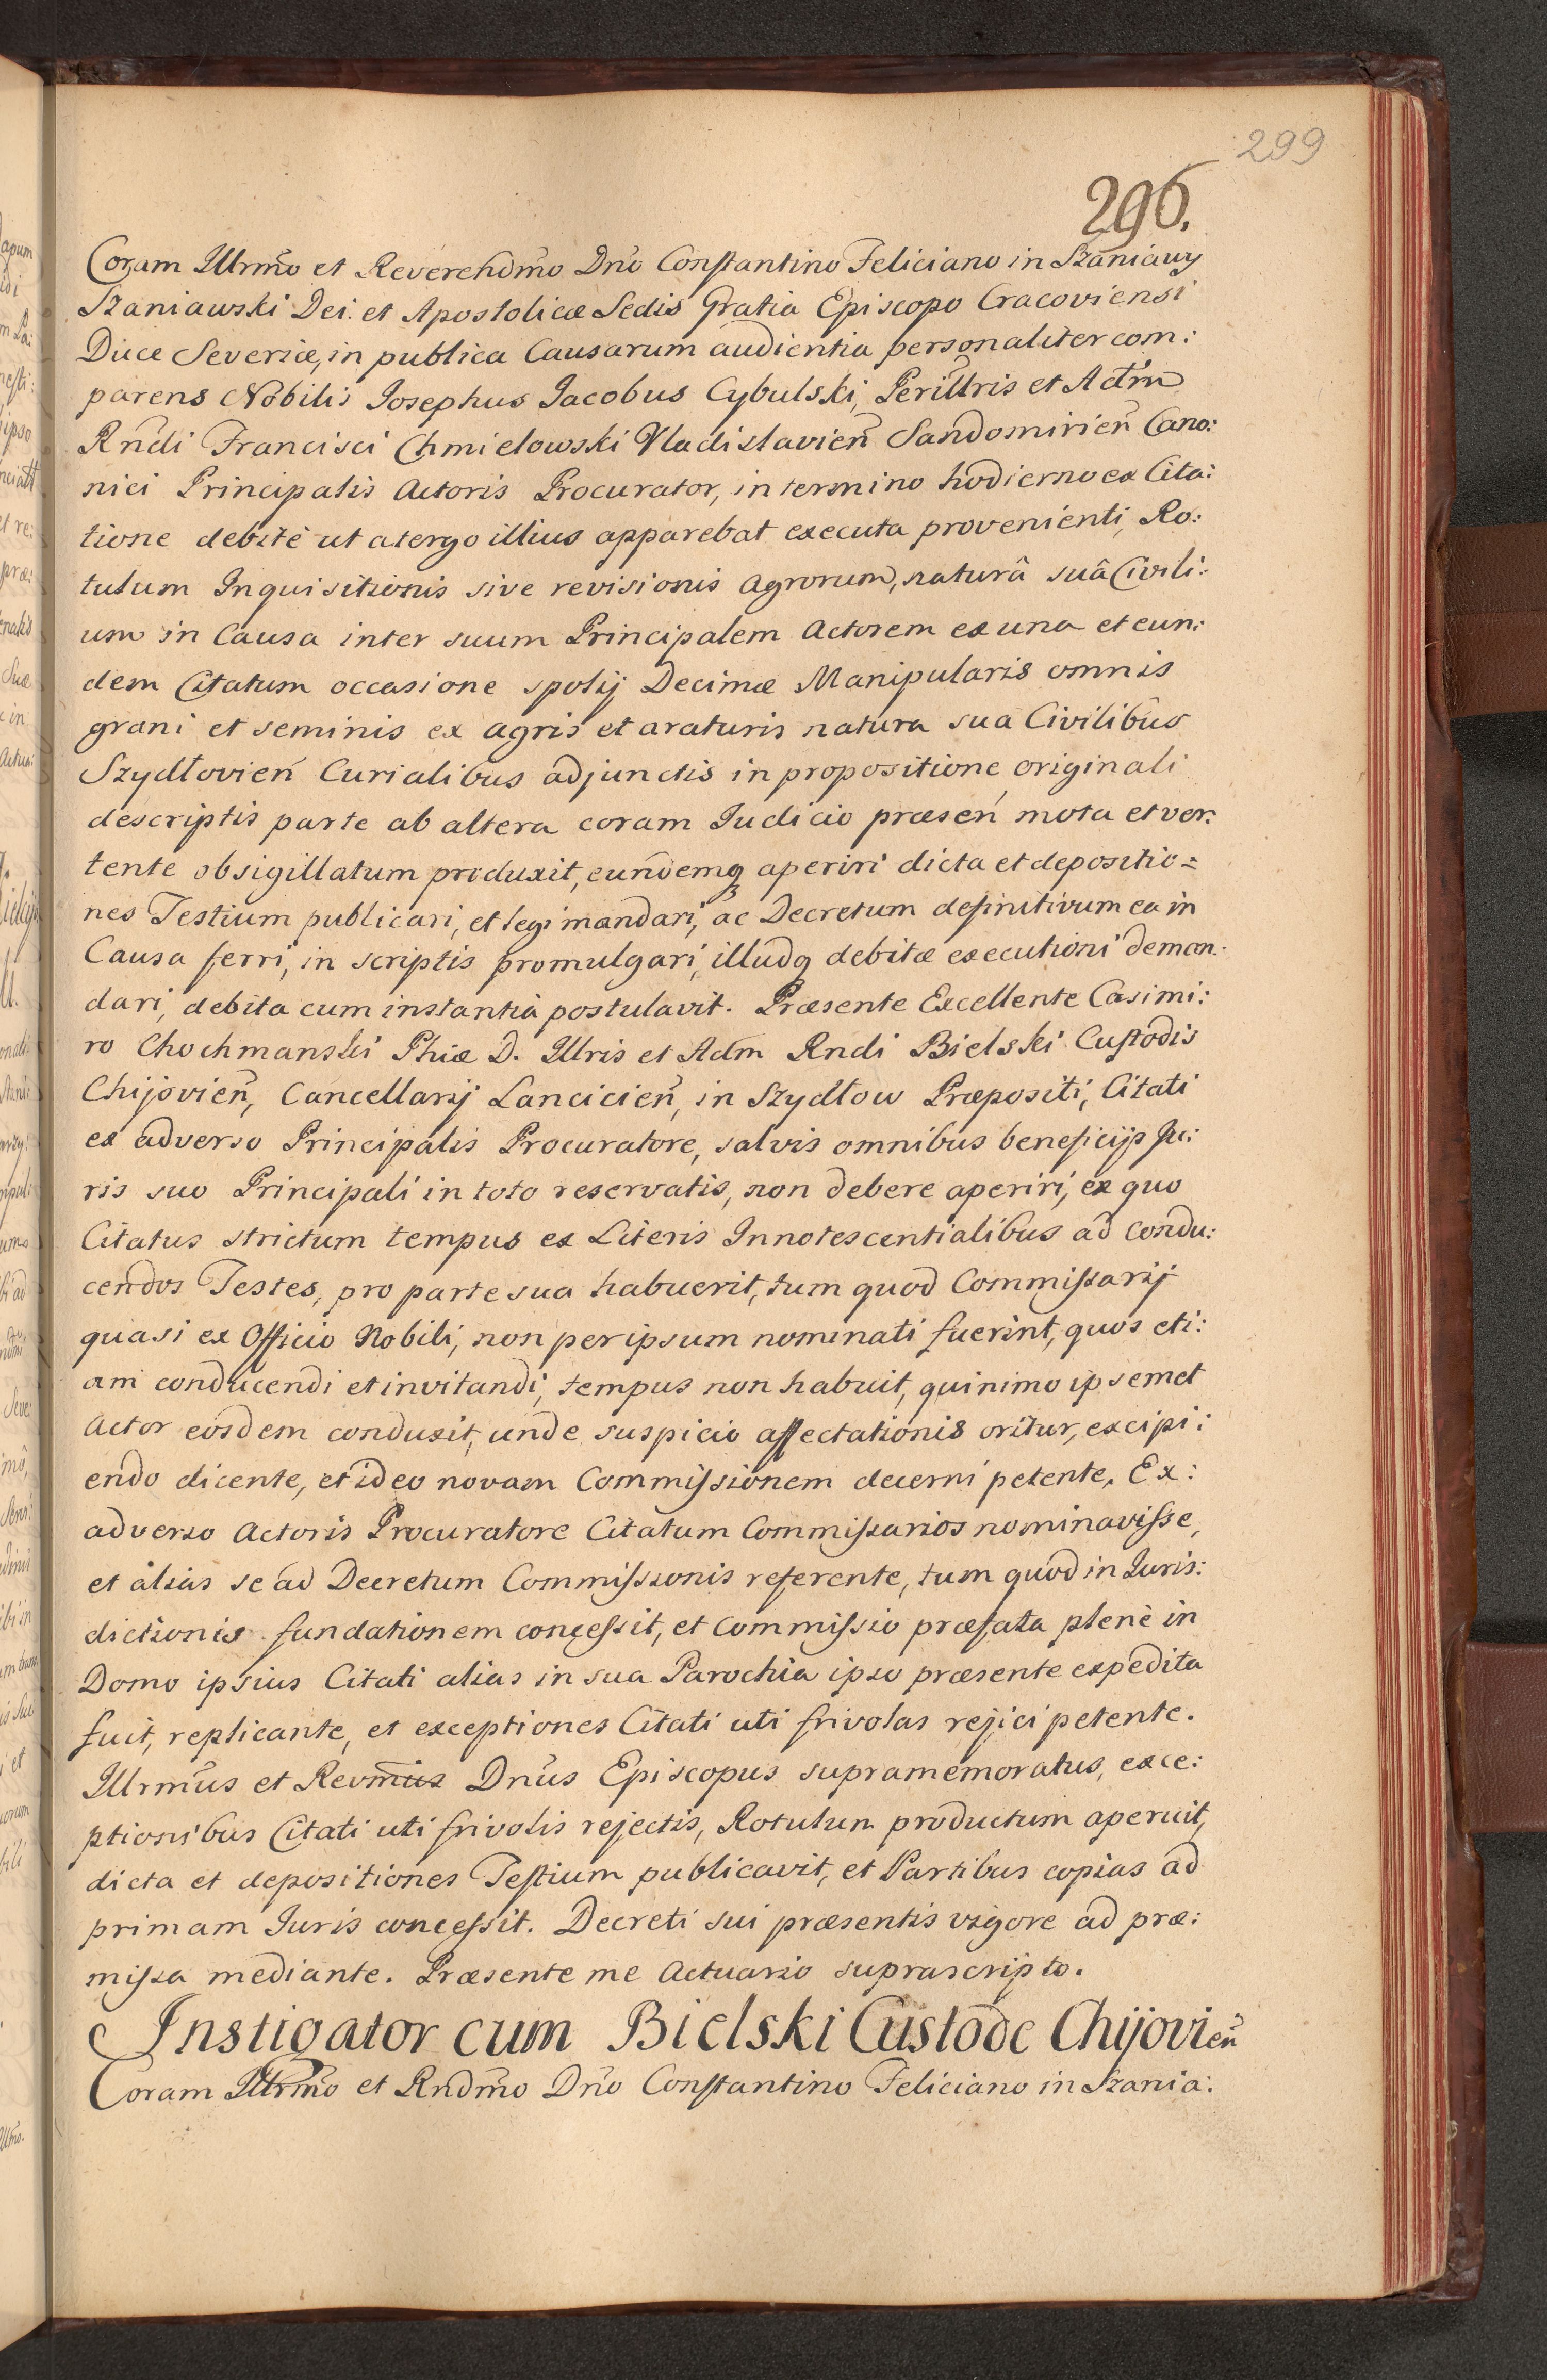 299
296.
Coram Illrmo et Reverendmo Dno Constantino Feliciano in Szaniawy
Szaniawski Dei et Apostolicæ Sedis Gratia Episcopo Cracoviensi
Duce Severiæ, in publica Causarum audientia personaliter com:
parens Nobilis Josephus Jacobus Cybulski, Perillris et Adm
Rndi Francisci Chmielowski Vladislavien Sandomirien Cano:
nici Principalis Actoris Procurator, in termino hodierno ex Cita:
tione debitè ut atergo illius apparebat executa provenienti, Ro:
tulum Inquisitionis sive revisionis Agrorum, naturâ suâ Civili:
um in Causa inter suum Principalem Actorem ex una et eun:
dem Citatum occasione spolij Decimæ Manipularis omnis
grani et seminis ex agris et araturis natura sua Civilibus
Szydłovien Curialibus adjunctis in propositione originali
descriptis parte ab altera coram Iudicio præsen mota et ver:
tente obsigillatum produxit, eundemq aperiri dicta et depositio=
nes Testium publicari, et legi mandari, ac Decretum definitivum ea in
Causa ferri, in scriptis promulgari, illudq debitæ executioni deman:
dari, debita cum instantia postulavit. Præsente Excellente Casimi:
ro Chochmanski Phiæ D. Illris et Adm Rndi Bielski Custodis
Chijovien, Cancellarij Lancicien, in Szydłow Præpositi, Citati
ex adverso Principalis Procuratore, salvis omnibus beneficijs Ju:
ris suo Principali in toto reservatis, non debere aperiri, ex quo
Citatus strictum tempus ex Literis Innotescentialibus ad condu:
cendos Testes, pro parte sua habuerit, tum quod Commissarij
quasi ex Officio Nobili, non per ipsum nominati fuerint, quos eti:
am conducendi et invitandi, tempus non habuit, quinimo ipsemet
Actor eosdem conduxit, unde suspicio affectationis oritur, excipi:
endo dicente, et ideo novam Commissionem decerni petente. Ex:
adverso Actoris Procuratore Citatum Commissarios nominavisse,
et alias se ad Decretum Commissionis referente, tum quod in Juris:
dictionis fundationem concessit, et Commissio præfata plenè in
Domo ipsius Citati alias in sua Parochia ipso præsente expedita
fuit, replicante, et exceptiones Citati uti frivolas rejici petente.
Illrmus et Revmus Dnus Episcopus supramemoratus, exce:
ptionibus Citati uti frivolis rejectis, Rotulum productum aperuit,
dicta et depositiones Testium publicavit, et Partibus copias ad
primam Juris concessit. Decreti sui præsentis vigore ad præ:
missa mediante. Præsente me Actuario suprascripto.
Instigator cum Bielski Custode Chijovien
Coram Illrmo et Rndmo Dno Constantino Feliciano in Szania: